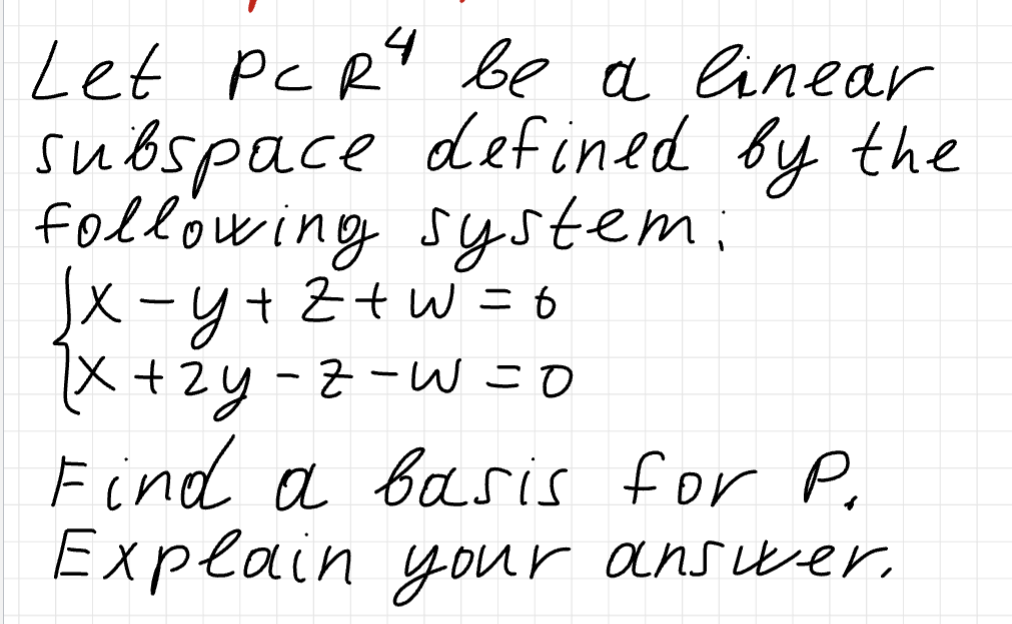 Let P⊂R⁴ be a linear
subspace defined by the
following system:
{x - y + z + w = 0
{x + 2y - z - w = 0
Find a basis for P.
Explain your answer.